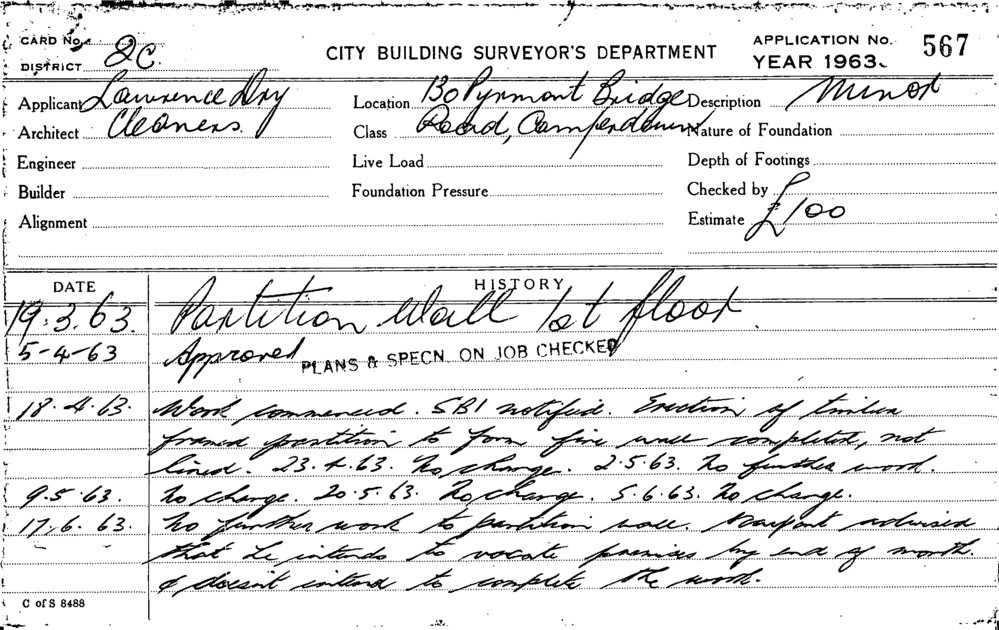 CARD No.
DISTRICT 2C.
CITY BUILDING SURVEYOR'S DEPARTMENT
APPLICATION No. 567
YEAR 1963.
Applicant Lawrence Dry
Architect Cleaners.
Engineer
Builder
Alignment
Location 130 Pyrmont Bridge
Class Road, Camperdown
Live Load
Foundation Pressure
Description Minor
Nature of Foundation
Depth of Footings
Checked by
Estimate £100
DATE HISTORY
19.3.63. Partition Wall 1st floor.
5-4-63 Approved PLANS & SPECN. ON JOB CHECKED
18.4.63. Work commenced. SBI notified. Erection of timber
framed partition to form fire wall completed, not
lined. 23.4.63. No change. 2.5.63. No further work.
9.5.63. No change. 20.5.63. No change. 5.6.63. No change.
17.6.63. No further work to partition wall. advised
that he intends to vacate premises by end of month
& doesn't intend to complete the work.
C of S 8488